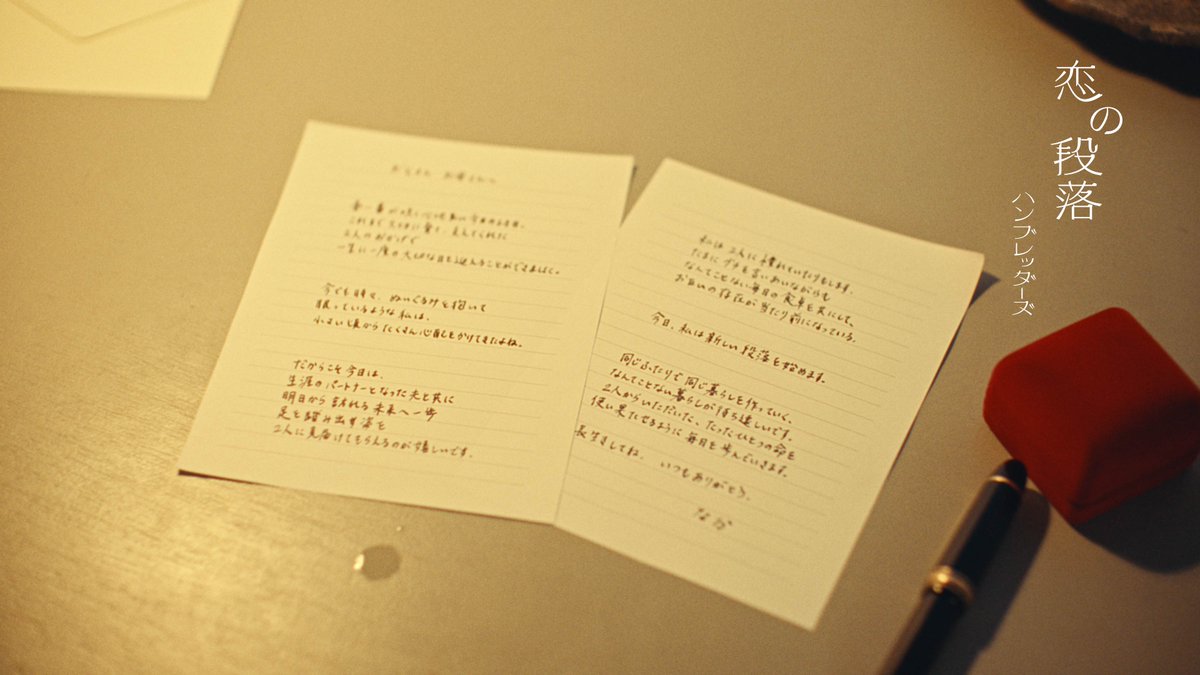 恋の段落
ハンブレッダーズ
お父さん お母さんへ
これまで大切に育て、支えてくれた
2人のおかげで
一生に一度の大切な日を迎えることができました。
今でも時々、ぬいぐるみを抱いて
眠っているような私は、
小さい頃からたくさん心配をかけてきたよね。
だからこそ今日は、
生涯のパートナーとなった夫と共に
明日から訪れる未来へ一歩
足を踏み出す姿を
2人に見届けてもらえるのが嬉しいです。
私は2人に憧れていたりもします。
たまにグチを言いあいながらも
なんてことない毎日の食卓を共にして、
お互いの存在が当たり前になっている。
今日、私は新しい段落を始めます。
同じふたりで同じ暮らしを作っていく、
なんてことない暮らしが待ち遠しいです。
2人からいただいた、たったひとつの命を
使い果たせるように毎日を歩んでいきます。
長生きしてね。 いつもありがとう。